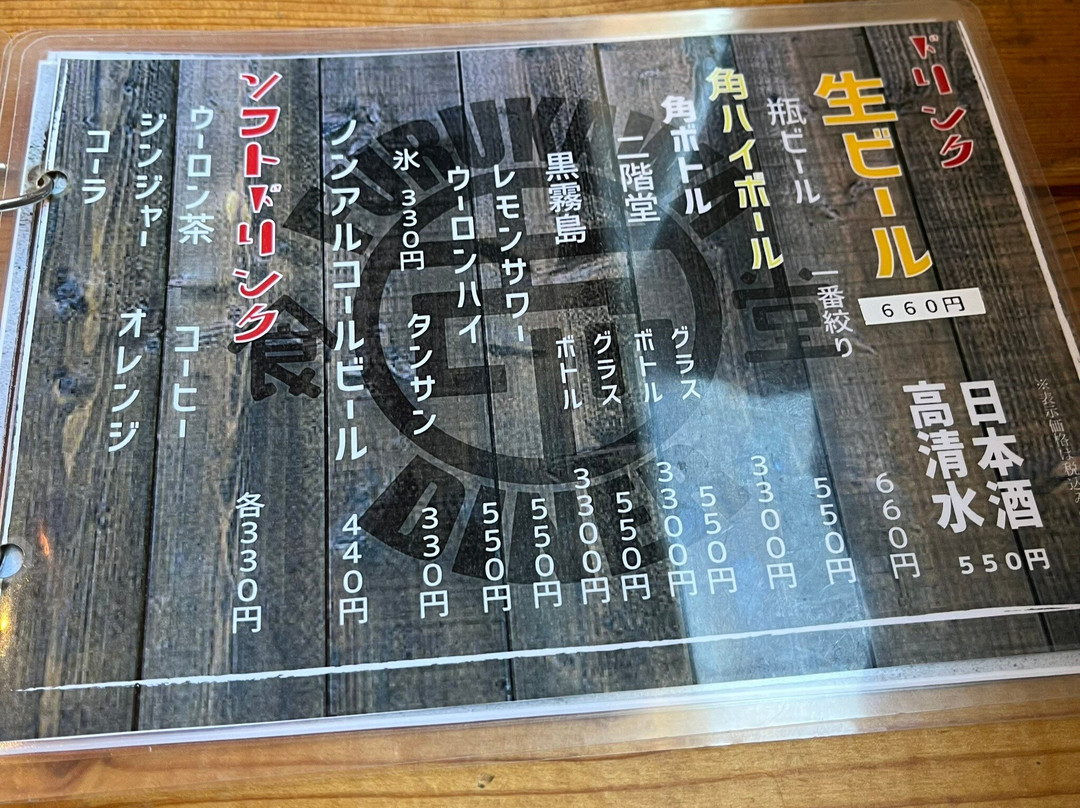 ドリンク
※表示価格は税込み
生ビール 660円
瓶ビール 一番絞り 660円
角ハイボール 550円
角ボトル 3300円
二階堂 グラス 550円
ボトル 3300円
黒霧島 グラス 550円
ボトル 3300円
レモンサワー 550円
ウーロンハイ 550円
氷 330円 タンサン 330円
ノンアルコールビール 440円
日本酒
高清水
550円
ソフトドリンク
ウーロン茶 コーヒー
ジンジャー オレンジ
コーラ
各330円
食 堂